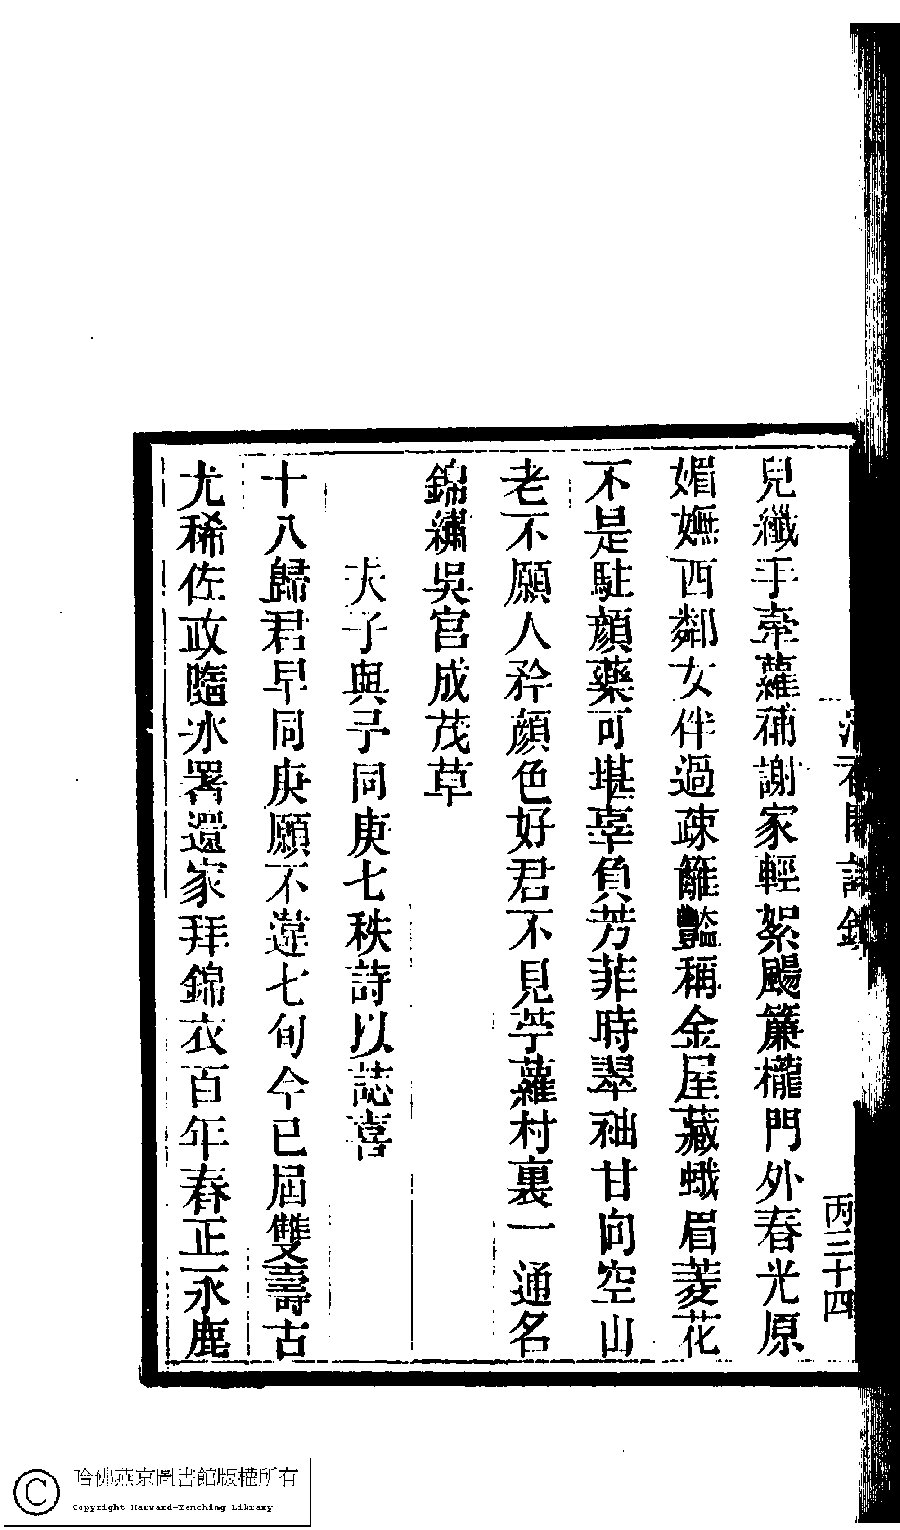 兒纖手牽蘿補謝家輕絮颺簾櫳門外春光原
媚嫵西鄰女伴過疎籬豔稱金屋藏蛾眉菱花
不是駐顏藥可堪辜負芳菲時翠袖甘向空山
老不願人矜顏色好君不見苧蘿村裏一通名
錦繡吳宮成茂草
夫子與予同庚七秩詩以誌喜
十八歸君早同庚願不違七旬今已屆雙壽古
尤稀佐政隨冰署還家拜錦衣百年春正永鹿
丙三十四
哈佛燕京圖書館版權所有
Copyright Harvard-Yenching Library